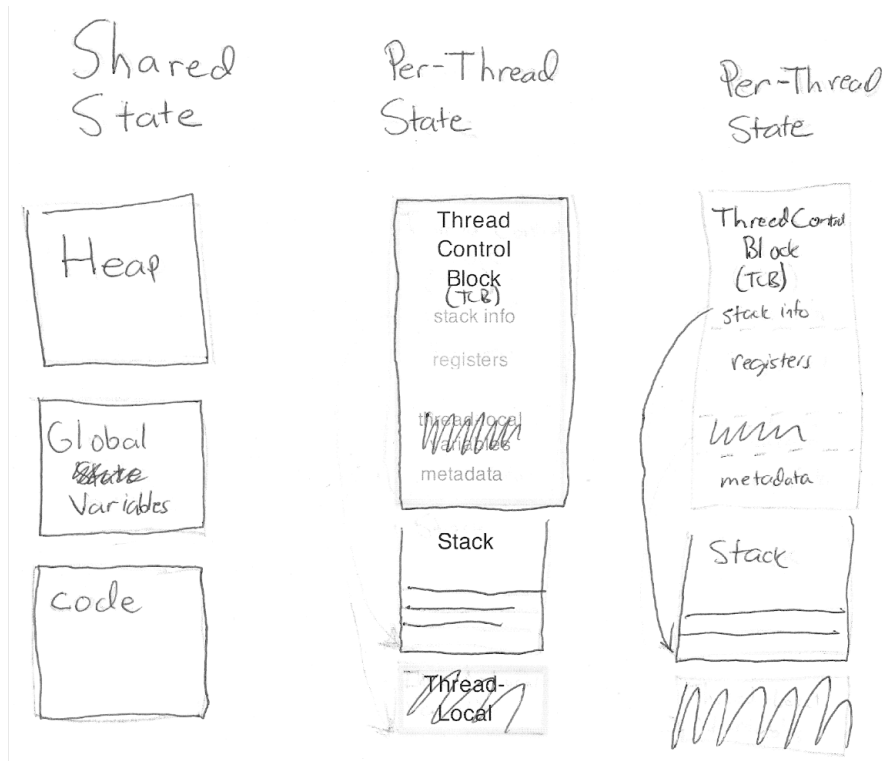 Shared
State
Heap
Global
State
Variables
Code
Per-Thread
State
Thread
Control
Block
(TCB)
stack info
registers
thread-local
variables
metadata
Stack
Thread-
Local
Per-Thread
State
Thread Control
Block
(TCB)
stack info
registers
metadata
Stack